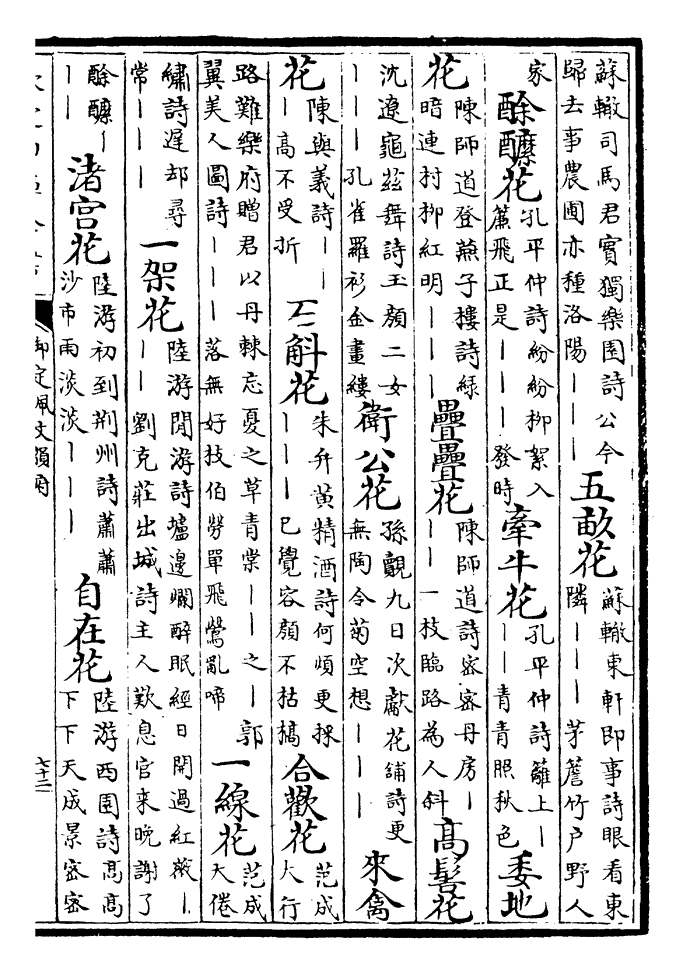 蘇轍司馬君實獨樂園詩公今
歸去事農圃亦種洛陽｜｜｜
五畝花
蘇轍東軒即事詩眼看東
隣｜｜｜茅簷竹户野人
家
酴醿花
孔平仲詩紛紛柳絮入
簾飛正是｜｜｜發時
牽牛花
孔平仲詩籬上｜
｜｜青青照秋色
委地
花
陳師道登燕子樓詩緑
暗連村柳紅明｜｜｜
疊疊花
陳師道詩密密丹房｜
｜｜一枝臨路為人斜
髙髻花
沈遼龜兹舞詩玉顔二女
｜｜｜孔雀羅衫金畫縷
衛公花
孫覿九日次獻花舖詩更
無陶令菊空想｜｜｜
來禽
花
陳與義詩｜｜
｜高不受折
斛花
朱弁黄精酒詩何煩更採
｜｜｜已覺容顔不枯槁
合歡花
范成
大行
路難樂府贈君以丹棘忘憂之草青棠｜｜之｜郭
翼美人圖詩｜｜｜落無好技伯勞單飛鶯亂啼
一線花
范成
大倦
繡詩遲却尋
常｜｜｜
一架花
陸游閒游詩壚邊爛醉眠經日開過紅薇｜
｜｜劉克莊出城詩主人歎息官來晚謝了
酴醿｜
｜｜
渚宫花
陸游初到荆州詩蕭蕭
沙市雨淡淡｜｜｜
自在花
陸游西園詩髙髙
下下天成景密密
御定佩文韻府
七十二